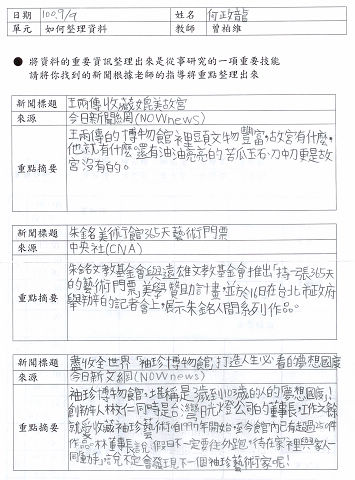 日期 100.9/9 姓名 何政龍
單元 如何整理資料 教師 曾柏維
● 將資料的重要資訊整理出來是從事研究的一項重要技能
請將你找到的新聞根據老師的指導將重點整理出來
新聞標題 王雨傳收藏媲美故宮
來源 今日新聞網(NOWnews)
重點摘要
王雨傳的博物館裡頭文物豐富,故宮有什麼,
他就有什麼。還有油油亮亮的苦瓜玉石、刀中刀更是故
宮沒有的。
新聞標題 朱銘美術館365天藝術門票
來源 中央社(CNA)
重點摘要
朱銘文教基金會與遠雄文教基金會推出「持一張365天
的藝術門票」美學贊助計畫,並於16日在台北市政府
舉辦的記者會上,展示朱銘人間系列作品。
新聞標題 蓋收全世界「袖珍博物館」打造人生必看的夢想國度
來源 今日新文網(NOWnews)
重點摘要
袖珍博物館,堪稱是1歲到103歲的人的夢想國度!
創辦人林文仁同時是台灣日光燈公司的董事長,工作之餘
就愛收藏袖珍藝術,從1997年開始,至今館內已有超過25件
作品。林董事長說,假日不一定要往外跑,待在家裡與家人一
同動手,說不定會發現下一個袖珍藝術家呢!